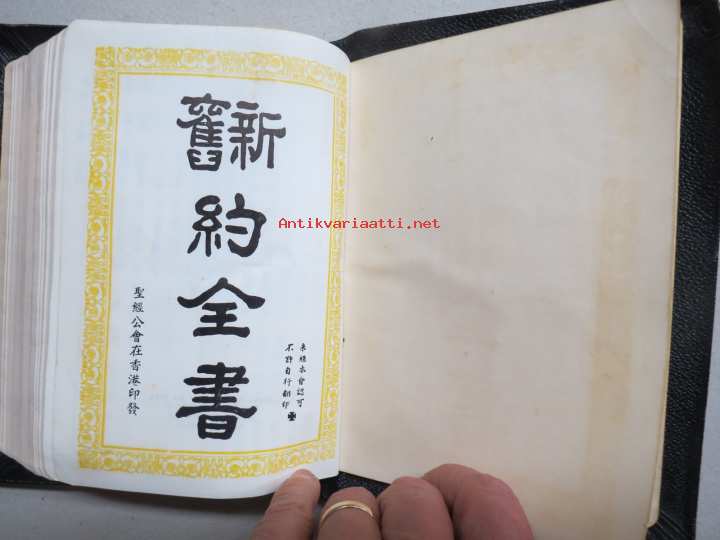 未經本會認可
不許自行翻印
新舊
約全書
聖經公會在香港印發
Antikvariaatti.net